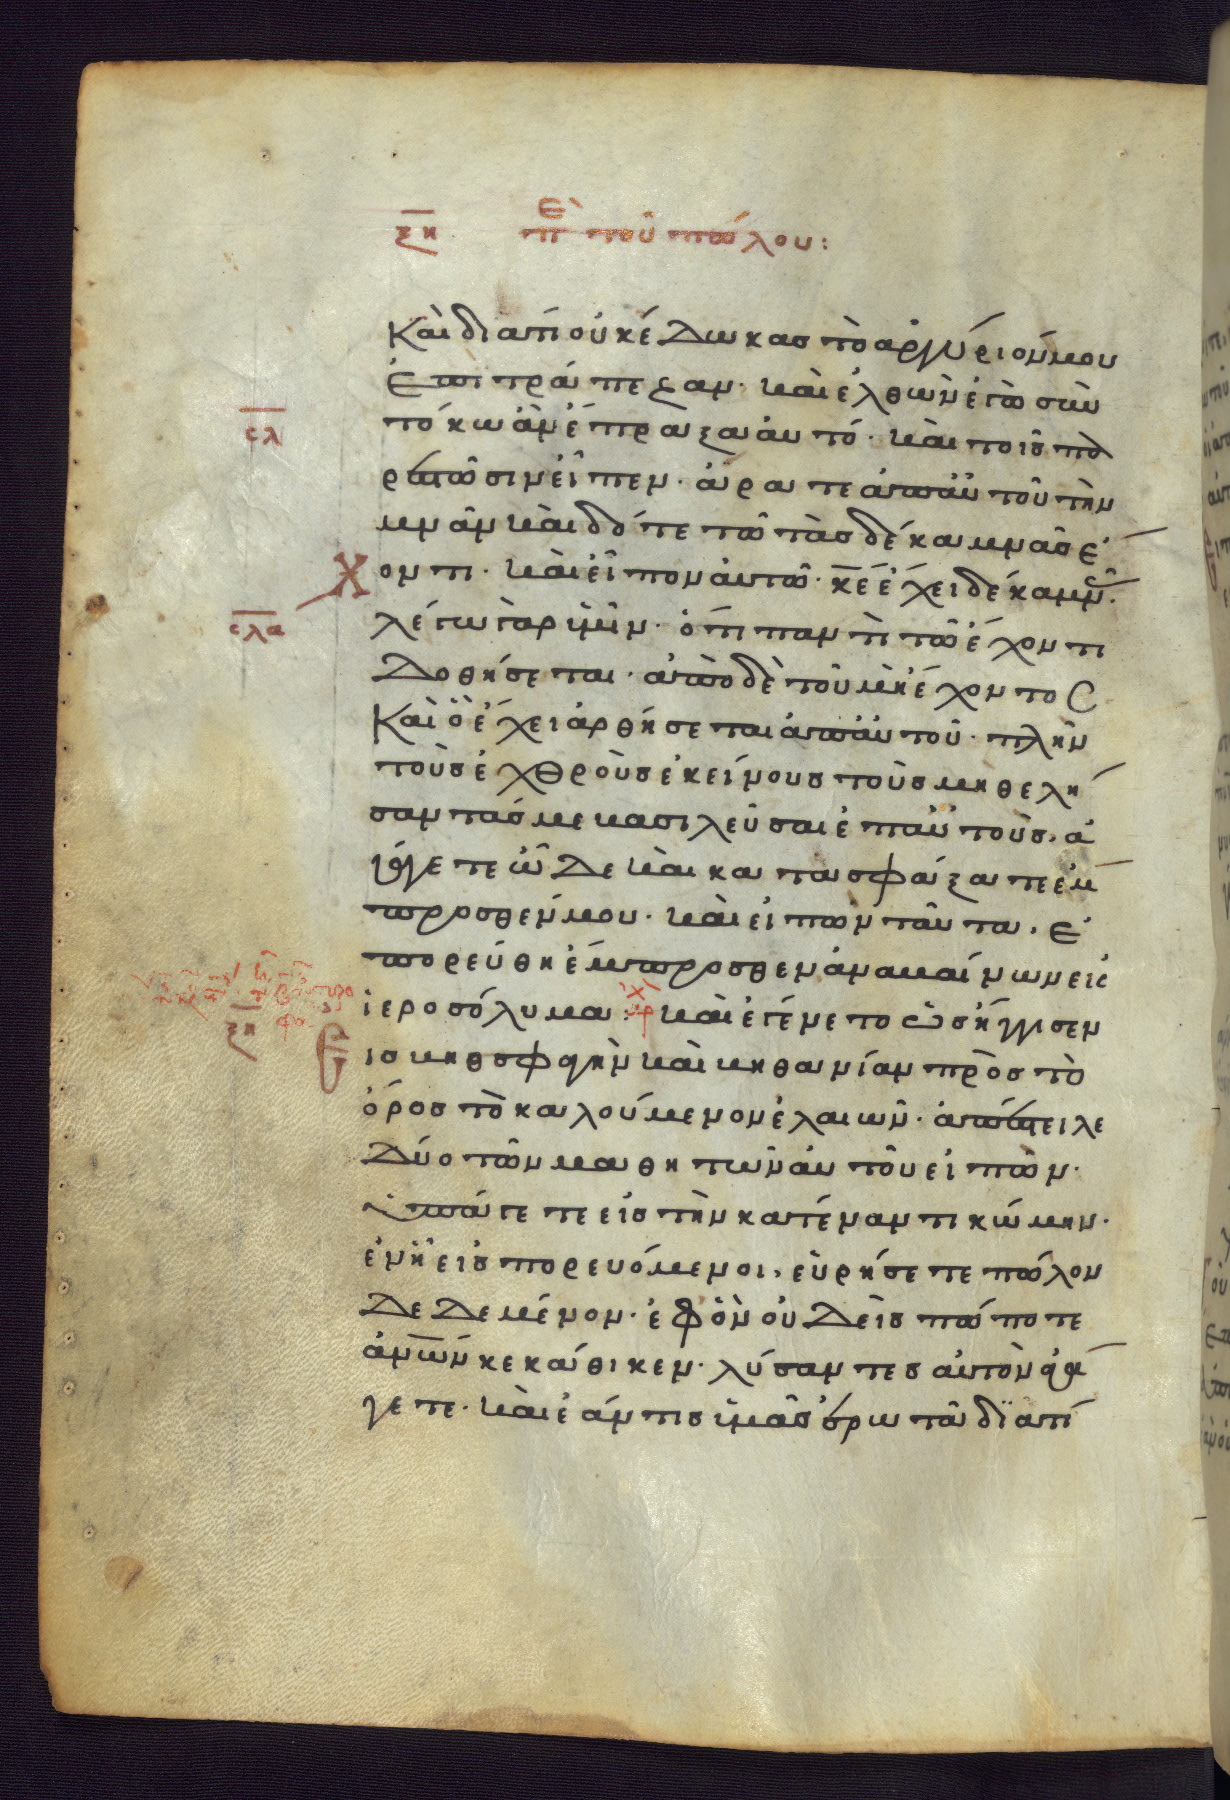 ξη ἐπὶ τοῦ πώλου:
Καὶ διατί οὐκ ἔδωκας τὸ ἀργύριόν μου
ἐπὶ τράπεζαν· καὶ ἐλθὼν ἐγὼ σὺν
σλ
τόκω ἂν ἔπραξα αὐτό· καὶ τοῖς πα
ρεστῶσιν εἶπεν· ἄρατε ἀπ' αὐτοῦ τὴν
μνᾶν καὶ δότε τῶ τὰς δέκα μνᾶς ἔ
χοντι· καὶ εἶπον αὐτῶ· κε ἔχει δέκα μν·
σλα
λέγω γὰρ ὑμῖν· ὅτι παντὶ τῶ ἔχοντι
δοθήσεται· ἀπὸ δὲ τοῦ μὴ ἔχοντος
καὶ ὃ ἔχει ἀρθήσεται ἀπ' αὐτοῦ· πλὴν
τοὺς ἐχθροὺς ἐκείνους τοὺς μὴ θελή
σαντάς με βασιλεῦσαι ἐπ' αὐτούς, ἀ
γάγετε ὧδε καὶ κατασφάξατε ἔμ
προσθέν μου· καὶ εἰπὼν ταῦτα, ἐ
πορεύθη ἔμπροσθεν ἀναβαίνων εἰς
ἱεροσόλυμα: καὶ ἐγένετο ὡς ἤγγισεν
ξη
εἰς βηθσφαγὴν καὶ βηθανίαν πρὸς τὸ
ὄρος τὸ καλούμενον ἐλαιῶν· ἀπέστειλε
δύο τῶν μαθητῶν αὐτοῦ εἰπών·
ὑπάγετε εἰς τὴν κατέναντι κώμην·
ἐν ἧ εἰσπορευόμενοι, εὑρήσετε πῶλον
δεδεμένον· ἐφ' ὃν οὐδεὶς πώποτε
ἀνων κεκάθικεν· λύσαντες αὐτὸν ἀγά
γετε· καὶ ἐάν τις ὑμᾶς ἐρωτᾶ διατί